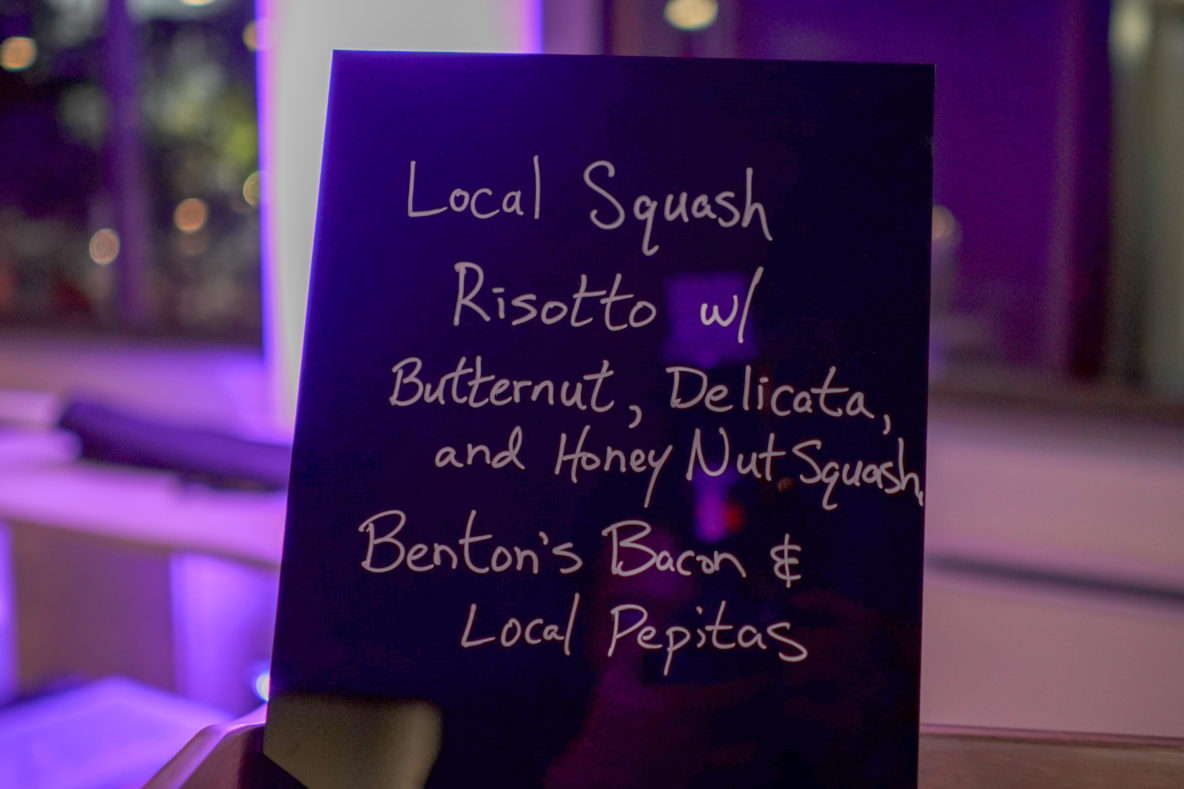 Local Squash
Risotto w/
Butternut, Delicata,
and Honey Nut Squash,
Benton's Bacon &
Local Pepitas